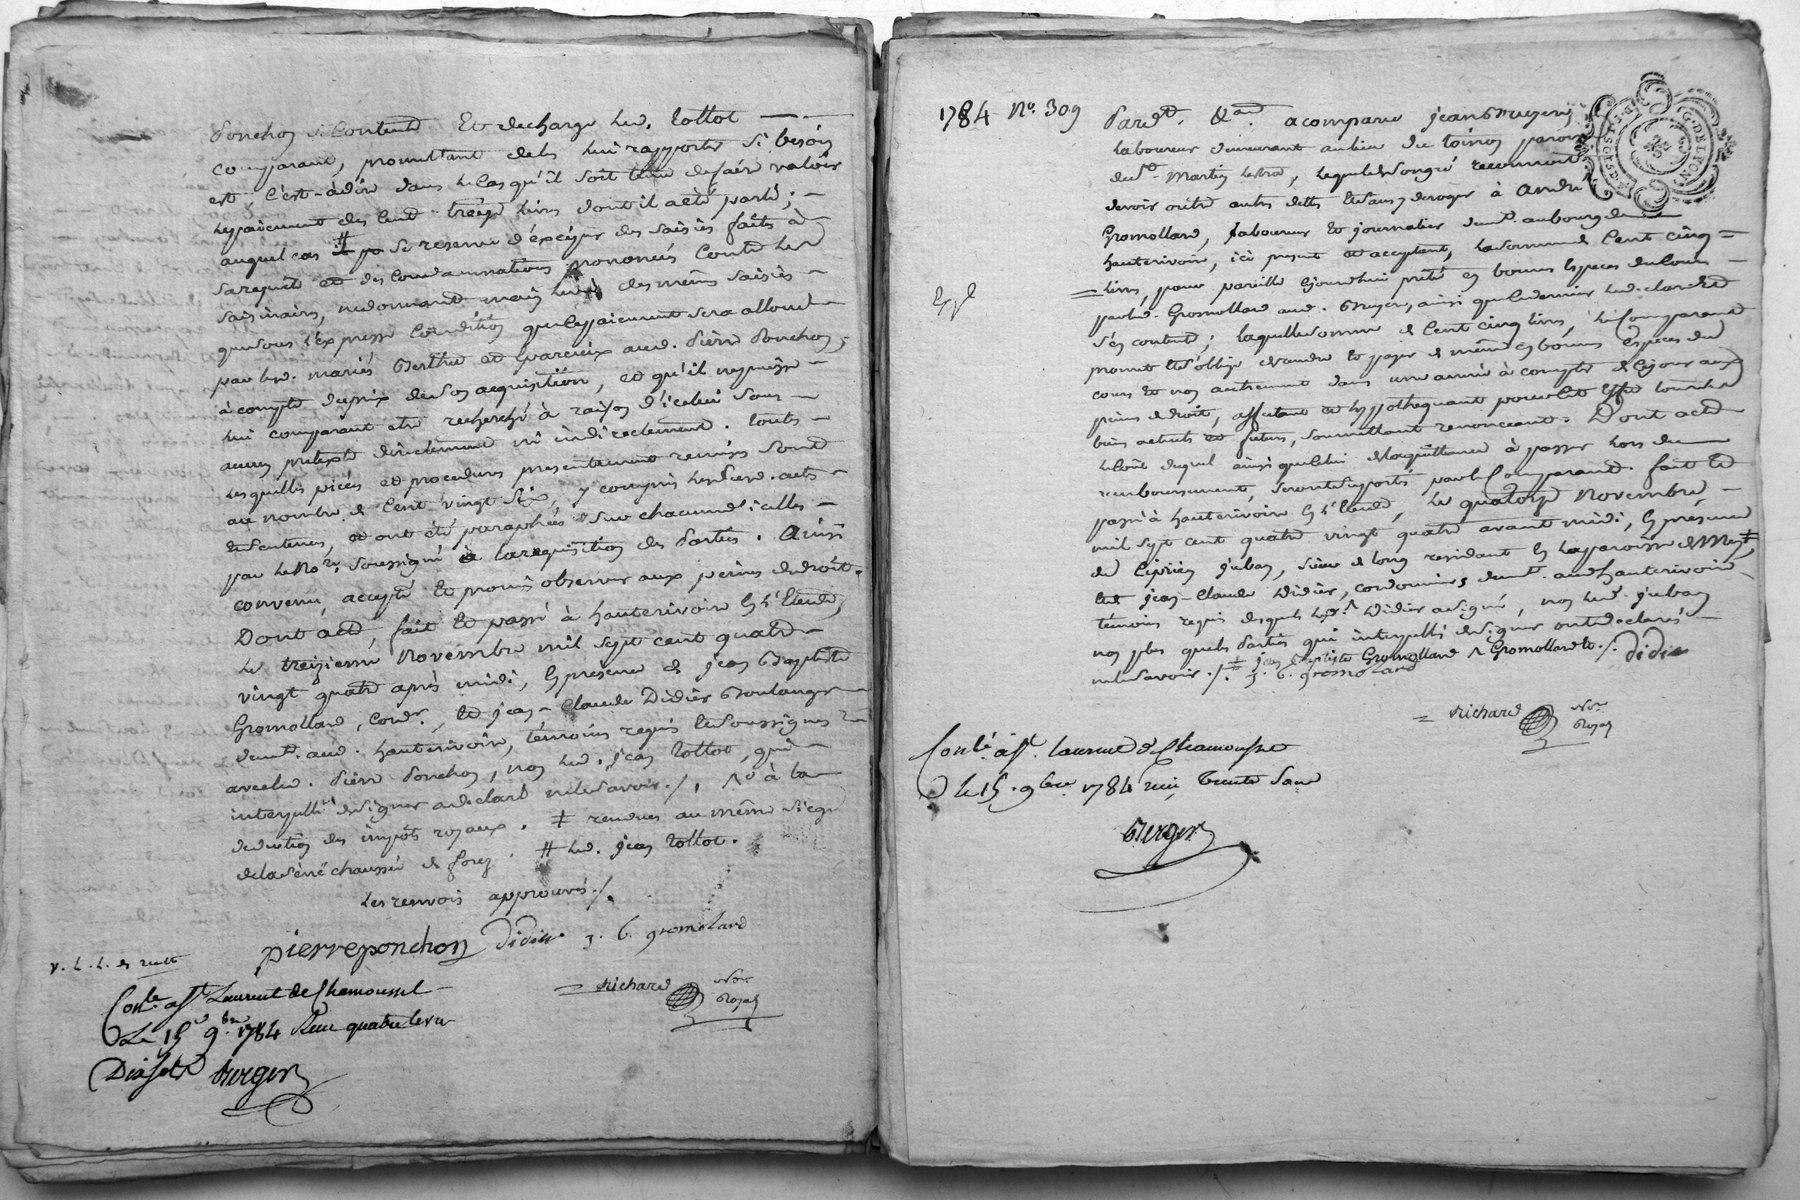 Ponchon si Contente Et decharge led. Tollot
comparant, promettant de les lui rapporter si besoin
est c'est-àdire dans le cas qu'il soit tenu de faire valoir
le paiement des Cent treize livres dont il a été parlé;
auquel cas # se reserve d'éxciper des saisies faites à
sa requete et des Condamnations prononcés Contre les
saisinaires, ne donnant main levée des mêmes saisies
que sous l'expresse Condition que le paiement sera alloué
par les d. mariés Berthet et aud. Pierre Ponchon,
à compte du prix de son acquisition, et qu'il ne puisse
lui comparant etre recherché à raison d'icelui sous
aucun pretexte directement ni indirectement. toutes
lesquelles pièces et procedures presentement remises sont
au nombre de Cent vingt six, y compris les dern. actes
et sentences, et ont été paraphées sur chacune d'icelles
par le No.re soussigné à la requisition des Parties. Ainsi
convenu, accepté et promis observer aux peines de droit.
Dont acte, fait et passé à hauterivoire En l'Etude,
le treizieme Novembre mil sept cent quatre
vingt quatre après midi, En présence de jean Baptiste
Gromollard, Cord.r, et jean-Claude Didier Boulanger
demt. aud. hauterivoire, témoins requis et soussignés
avec led. Pierre Ponchon, non led. jean Tollot, qui
interpellé de signer a declaré ne le savoir ./. à la
deduction des impôts royaux. ‡ rendues au même siege
de la sénéchaussée de forez. # led. jean Tollot.
les renvois approuvés ./.
pierreponchon Didier J. B. gromolard
v. L. L. de
Richard No.re Royal
Con.lé à St Laurent de Chamousset
Le 15 9.bre 1784 Reçu quatre livres
Dix sols Berger
1784 N.o 309
Pard.t &a. a comparu jean Bruyere
laboureur demeurant au lieu de Toinon paroisse
de St. Martin Lestra, lequel de son gré reconnoit
devoir outre autres dettes et sans y deroger à André
Gromollard, laboureur et journalier demt. au bourg de
hauterivoire, ici present et acceptant, la somme de Cent cinq
livres pour pareille Ejourdhui prêté en bonnes Especes du Cours
par led. Gromollard aud. Bruyere, ainsi que le dernier le declare et
s'en contente; laquelle somme de Cent cinq livres, le Comparant
promet et s'oblige de rendre et payer de même en bonnes Especes du
cours et non autrement dans une année à compter de Ce jour aux
peines de droit, affectant et hypothequant pour cet effet tous ses
biens actuels et futurs, soumettant renonceant. Dont acte
le Coût duquel ainsi que celui de la quittance à passer lors du
remboursement, seront suportés par le Comparant. fait et
passé à hauterivoire En l'Etude, le quatorze Novembre
mil sept cent quatre vingt quatre avant midi, En présence
de Ciprien juban, Sieur de long residant En la paroisse de Meys ‡
et de jean-Claude Didier, cordonniers demt. aud. hauterivoire
témoins requis desquels led. Didier a signé, non led. juban
non plus que les Parties qui interpellés de signer ont declaré
ne le savoir ./. ‡ jean Baptiste Gromollard Gromollard ./. Didier
J. B. gromolard
Richard No.re Royal
Con.lé à St. Laurent de Chamousset
Le 15. 9bre 1784 reçu Trente Sous
Berger
G. DE LYON